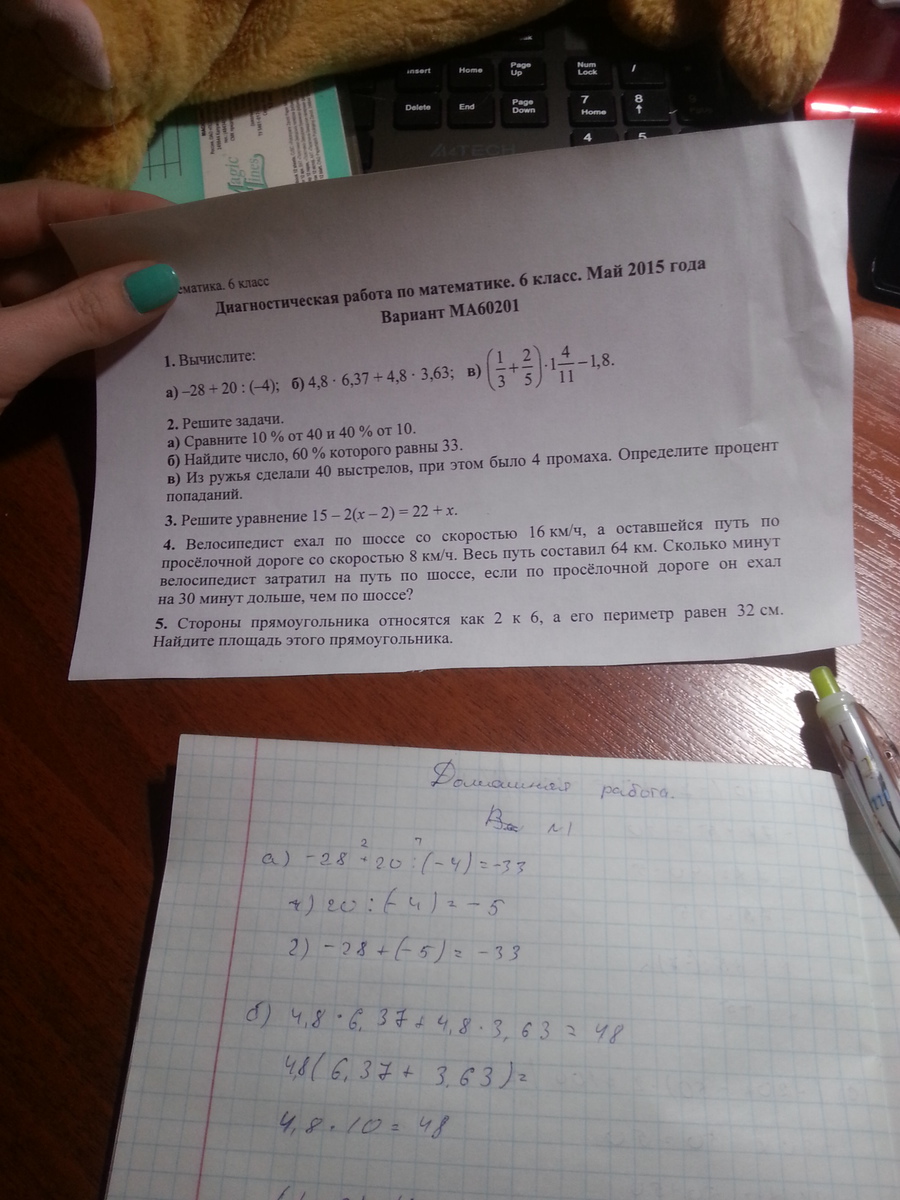 Insert Home Page Up Num Lock /
Delete End Page Down 7 Home 8 ↑
4 5
A4TECH
Magic Lines
ематика. 6 класс
Диагностическая работа по математике. 6 класс. Май 2015 года
Вариант МА60201
1. Вычислите:
а) –28 + 20 : (–4); б) 4,8 · 6,37 + 4,8 · 3,63; в) (1/3 + 2/5) · 1 4/11 – 1,8.
2. Решите задачи.
а) Сравните 10 % от 40 и 40 % от 10.
б) Найдите число, 60 % которого равны 33.
в) Из ружья сделали 40 выстрелов, при этом было 4 промаха. Определите процент
попаданий.
3. Решите уравнение 15 – 2(x – 2) = 22 + x.
4. Велосипедист ехал по шоссе со скоростью 16 км/ч, а оставшейся путь по
просёлочной дороге со скоростью 8 км/ч. Весь путь составил 64 км. Сколько минут
велосипедист затратил на путь по шоссе, если по просёлочной дороге он ехал
на 30 минут дольше, чем по шоссе?
5. Стороны прямоугольника относятся как 2 к 6, а его периметр равен 32 см.
Найдите площадь этого прямоугольника.
Домашняя работа.
№1
а) -28 + 20 : (-4) = -33
1) 20 : (-4) = -5
2) -28 + (-5) = -33
б) 4,8 · 6,37 + 4,8 · 3,63 = 48
4,8(6,37 + 3,63) =
4,8 · 10 = 48